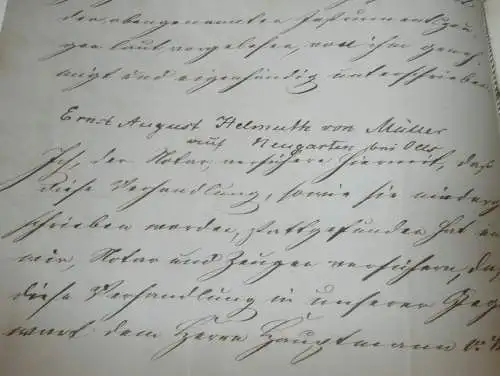 der obengenannten Instrumentszeu-
gen laut vorgelesen, von ihm geneh-
migt und eigenhändig unterschrieben
Ernst August Helmuth von Müller
auf Neugarten bei
Ich, der Notar, versichere hiermit, daß
diese Verhandlung, sowie sie niederge
schrieben worden, stattgefunden hat und
wir, Notar und Zeugen versichern, daß
diese Verhandlung in unserer Geg
wart dem Herrn Hauptmann